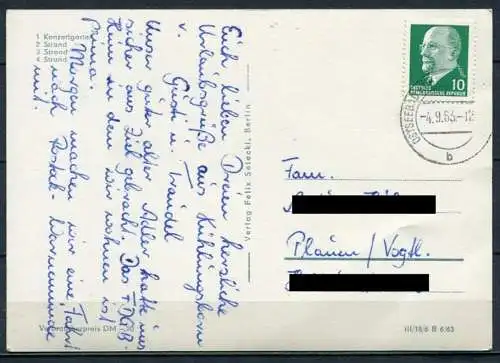 1 Konzertgarten
2 Strand
3 Strand
4 Strand
Euch lieben Dreien herzliche
Urlaubsgrüße aus Kühlungsborn
v. Gusti u.
Unser guter alter Adler hatte uns
sicher ans Ziel gebracht. Das FDGB-
Heim in dem wir wohnen ist
prima.
Morgen machen wir eine Fahrt
nach Rostock - Warnemünde
mit.
Verbraucherpreis DM -,
Verlag Felix Setecki, Berlin
III/18/6 B 6/63
DEUTSCHE
DEMOKRATISCHE REPUBLIK
10
OSTSEEBAD
-4.9.63.-12
b
Fam.
Plauen / Vogtl.